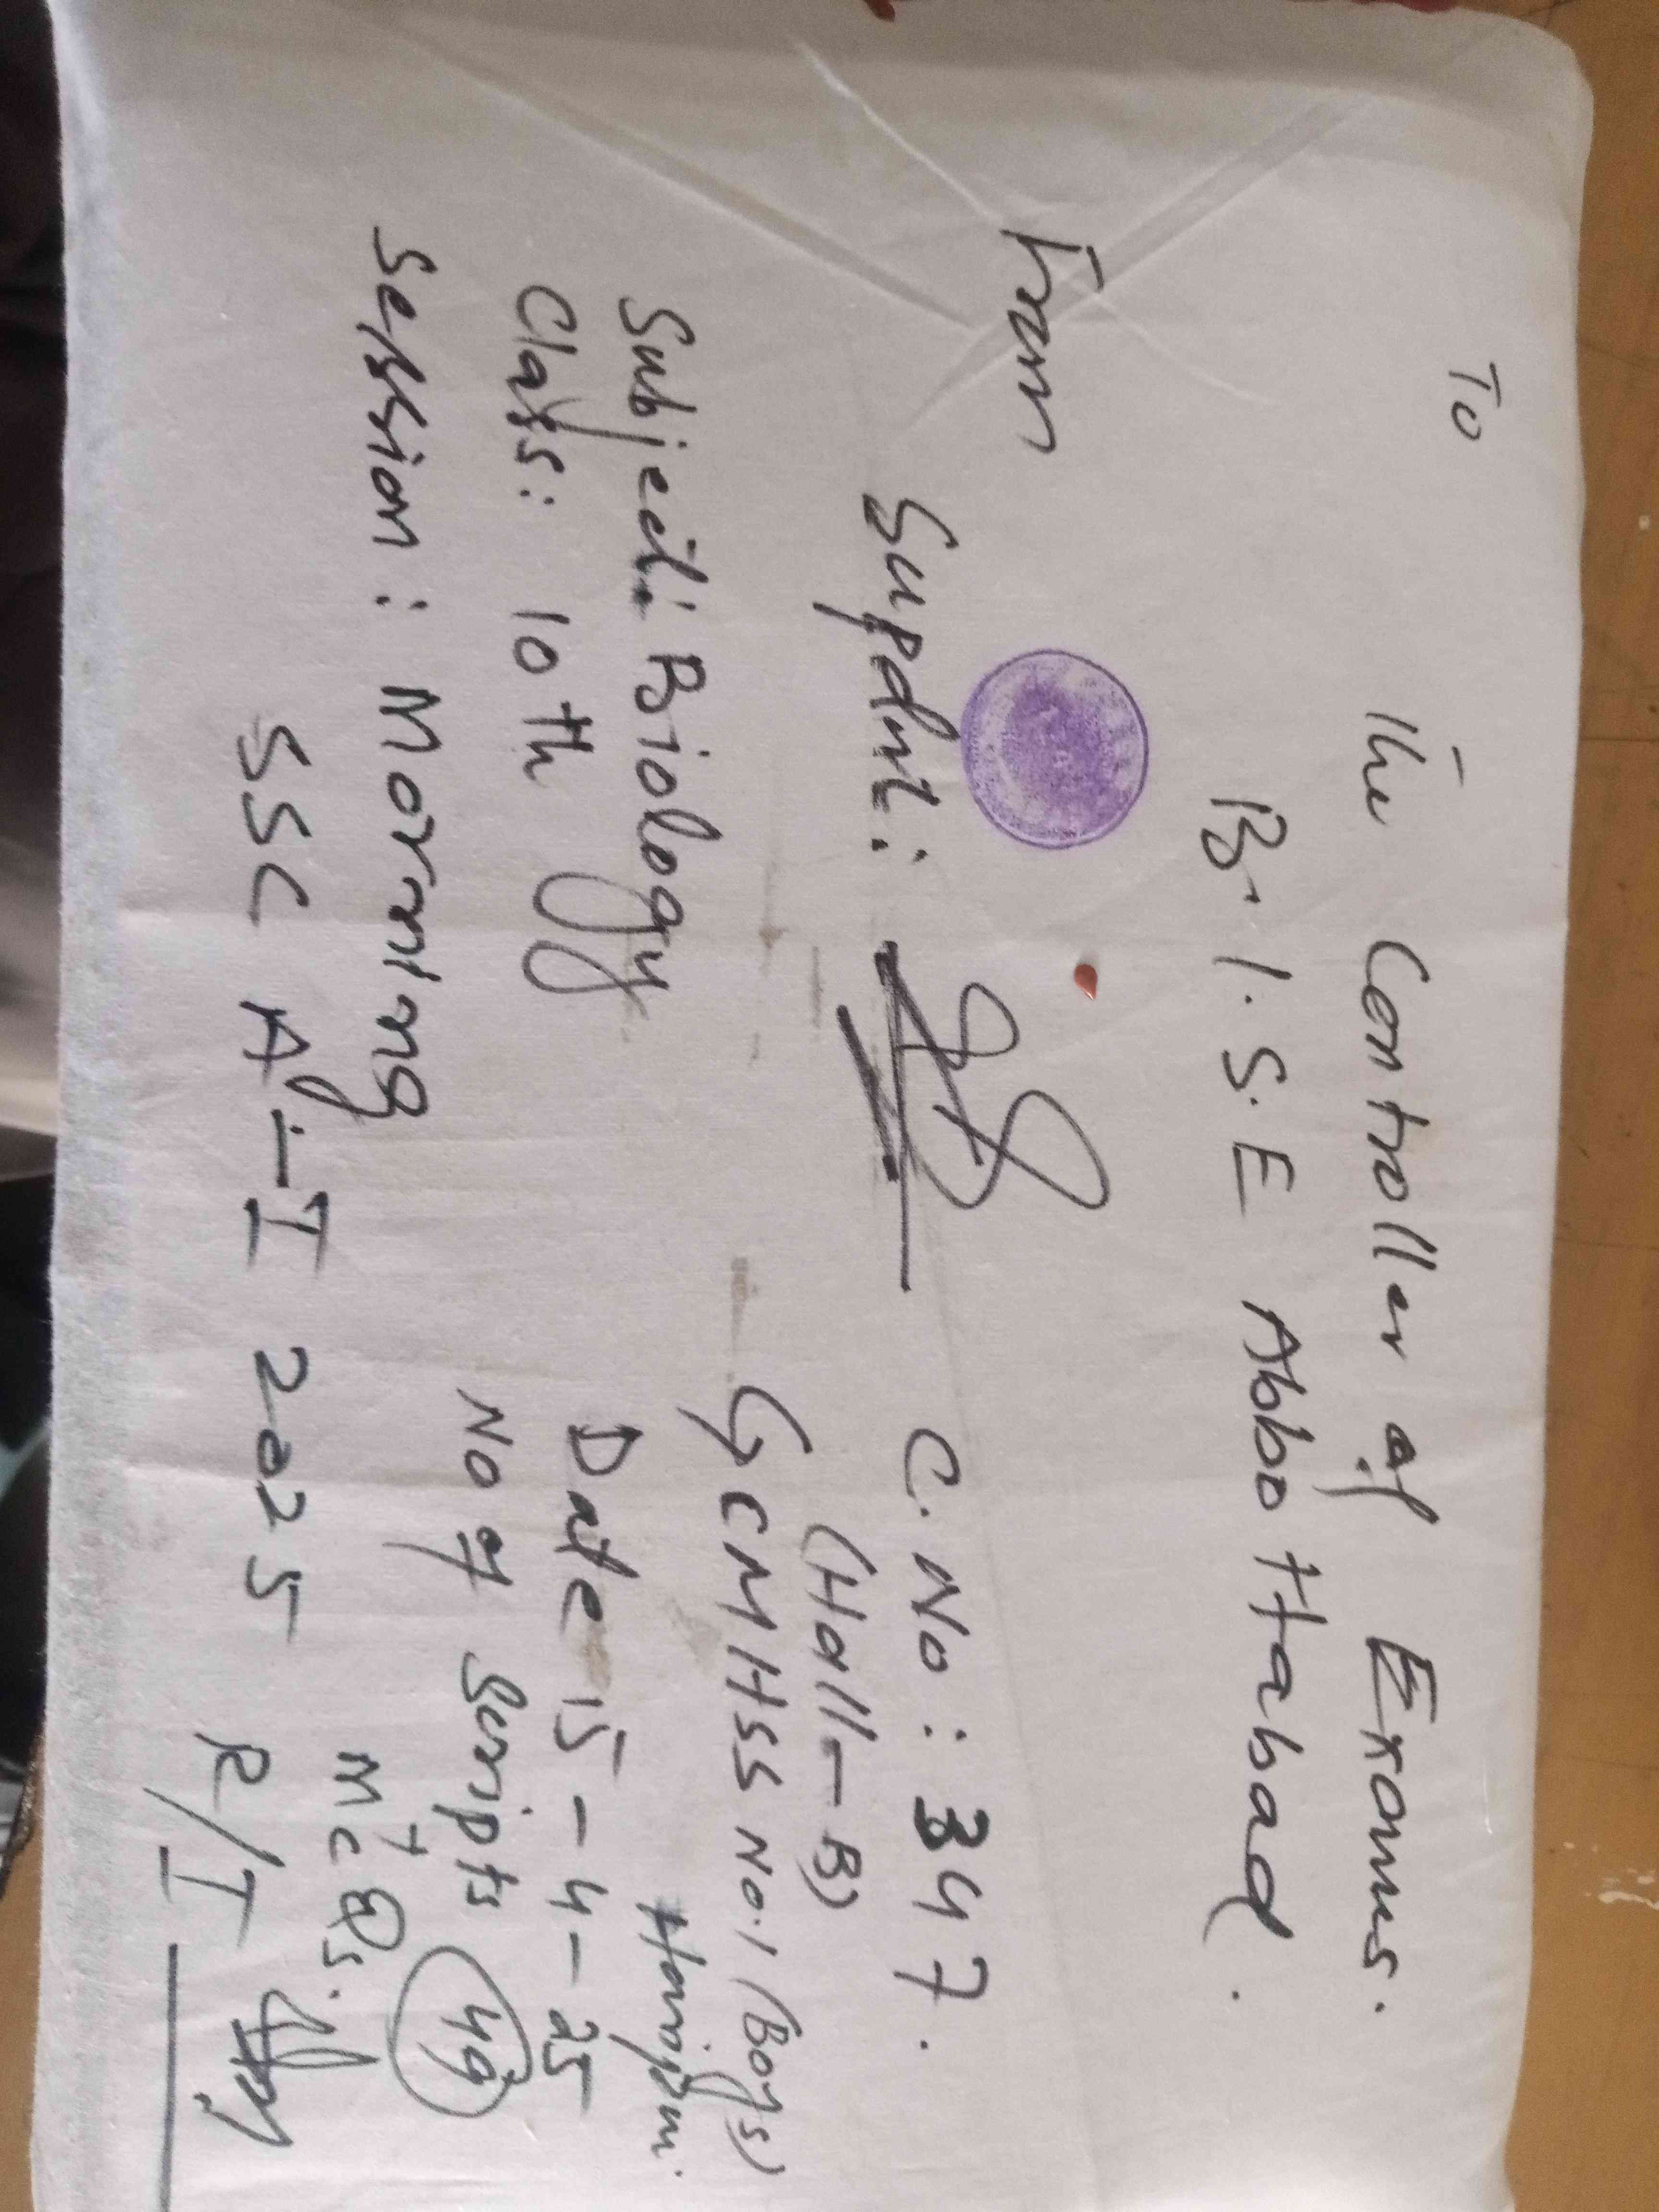 To
The Controller of Exams.
B.I.S.E Abbottabad.
From
Supdnt:
C.No: 347.
(Hall-B)
GCMHSS No.1 (Boys)
Haripur.
Subject: Biology
Date 15-4-25
Class: 10th
No of Scripts 49
+
Session: Morning
McQs.
SSC A-I 2025
R/I